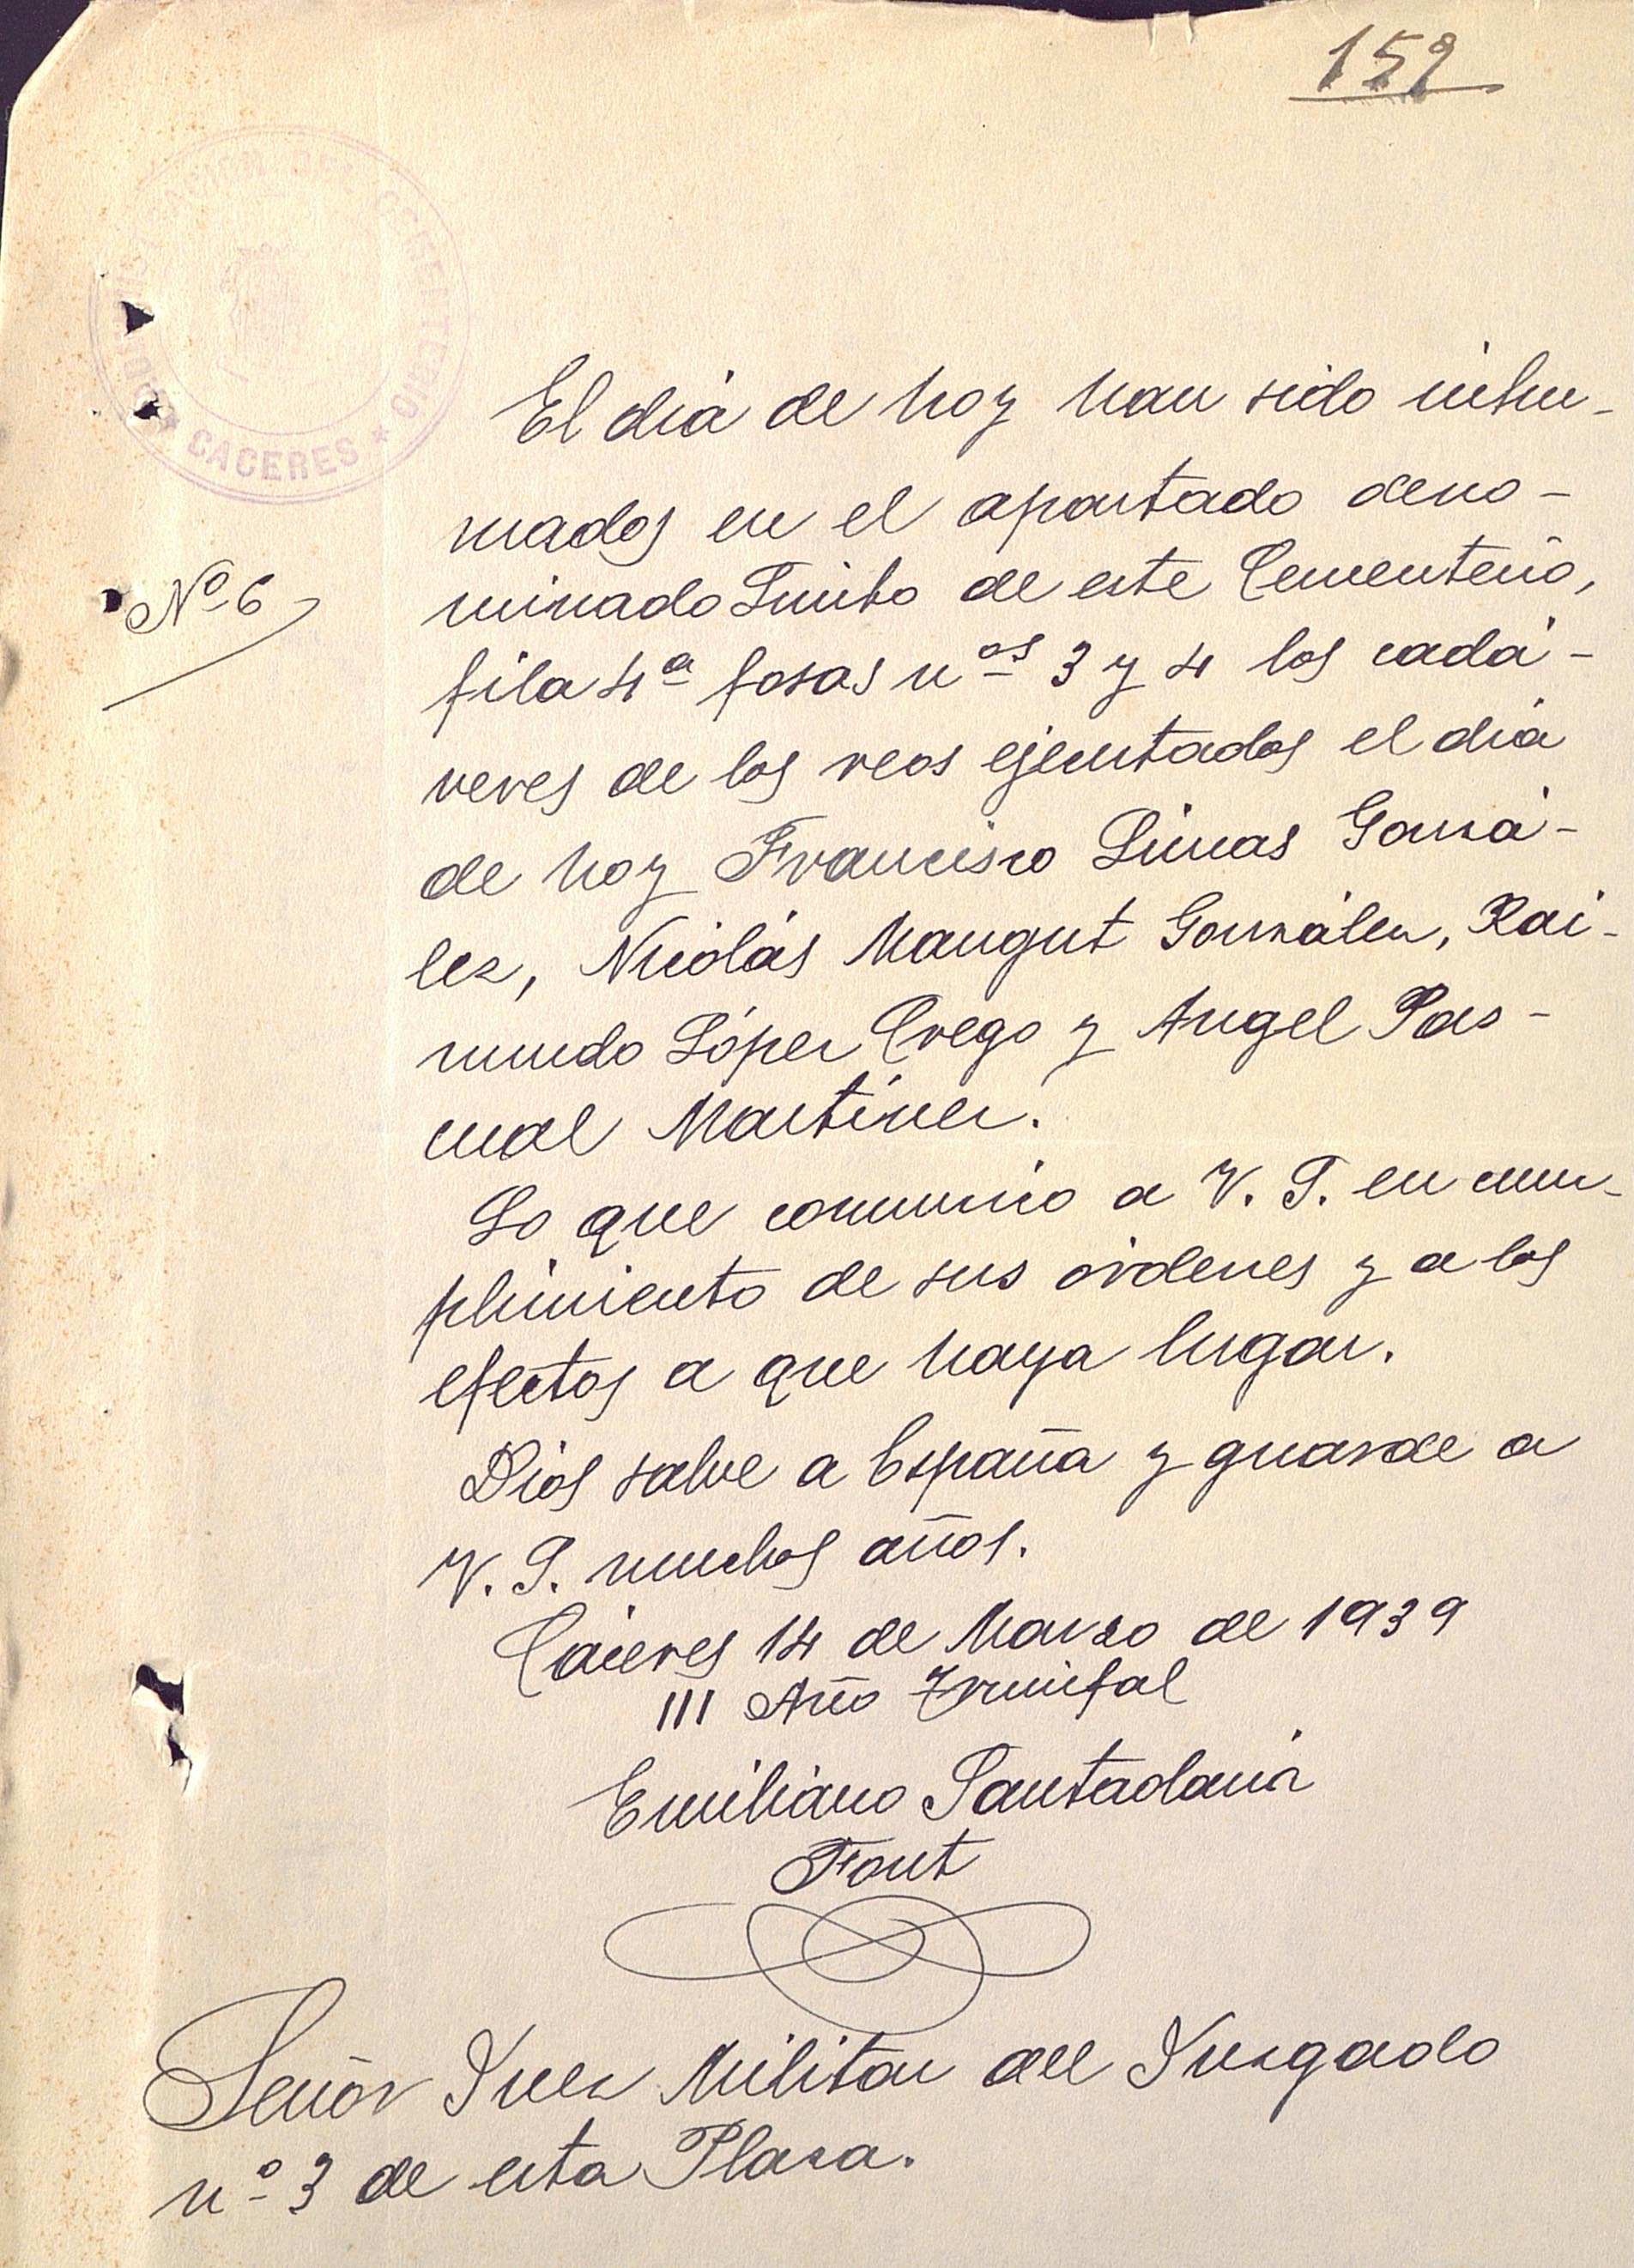 152
CACERES
El día de hoy han sido inhu-
mados en el apartado deno-
minado Limbo de este Cementerio,
Nº 6
fila 4ª fosas nos 3 y 4 los cadá-
veres de los reos ejecutados el día
de hoy Francisco Limas Gonzá-
lez, Nicolás Mangut González, Rai-
mundo López Crego y Angel Pas-
cual Martínez.
Lo que comunico a V. S. en cum-
plimiento de sus órdenes y a los
efectos a que haya lugar.
Dios salve a España y guarde a
V. S. muchos años.
Cáceres 14 de Marzo de 1939
III Año Triunfal
Emiliano Santaolaria
Font
Señor Juez Militar del Juzgado
nº 3 de esta Plaza.